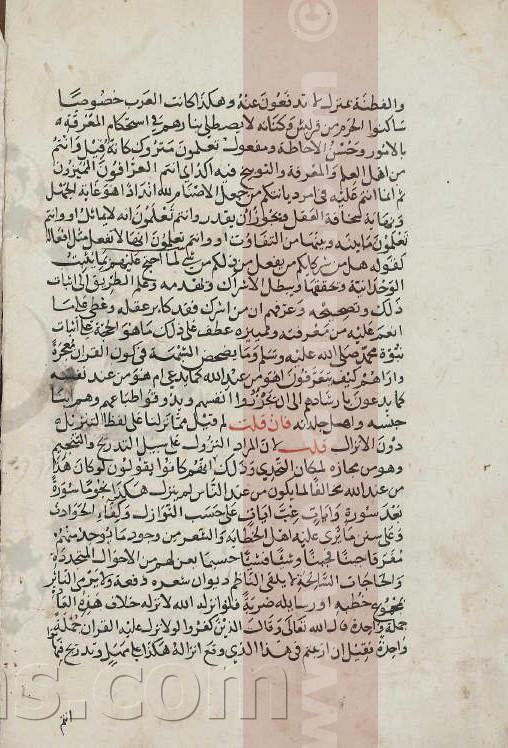 والفطنة بمنزل لا تدفعون عنه وهكذا كانت العرب خصوصا
ساكنوا الحرم من قريش وكنانة لا يصطلى بنارهم في استحكام المعرفة
بالامور وحسن الاحاطة ومفعول تعلمون متروك كانه قيل وانتم
من اهل العلم والمعرفة والتوبيخ فيه اكد اي انتم العرافون المميزون
ثم ان ما انتم عليه في امر ديانتكم من جعل الاصنام لله اندادا هو غاية الجهل
ونهاية سخافة العقل ويجوز ان يقدر وانتم تعلمون انه لا يماثل او وانتم
تعلمون ما بينه وبينها من التفاوت او وانتم تعلمون انها لا تفعل مثل افعاله
كقوله هل من شركائكم من يفعل من ذلكم من شي لما احتج عليهم بما يثبت
الوحدانية ويحققها ويبطل الاشراك ويهدمه وعلم الطريق الى اثبات
ذلك وتصحيحه وعرفهم ان من اشرك فقد كابر عقله وغطى على ما
انعم عليه من معرفته وتمييزه عطف على ذلك ما هو الحجة على اثبات
نبوة محمد صلى الله عليه وسلم وما يدحض الشبهة في كون القران معجزة
واراهم كيف يتعرفون اهو من عند الله كما يدعي ام هو من عند نفسه
كما يدعون بارشادهم الى ان يحزروا انفسهم ويذوقوا طباعهم وهم ابنا
جنسه واهل جلدته فان قلت لم قيل مما نزلنا على لفظ التنزيل
دون الانزال قلت لان المراد النزول على سبيل التدريج والتنجيم
وهو من محازه لمكان التحدي وذلك انهم كانوا يقولون لو كان هذا
من عند الله مخالفا لما يكون من عند الناس لم ينزل هكذا نجوما سورة
بعد سورة وايات غب ايات على حسب النوازل وكفاء الحوادث
وعلى سنن ما نرى عليه اهل الخطابة والشعر من وجود ما يوجد منهم
مفرقا حينا فحينا وشيئا فشيئا حسبما يعن لهم من الاحوال المتجددة
والحاجات السانحة لا يلقي الناظم ديوان شعره دفعة ولا يرمي الناثر
بمجموع خطبه او رسائله ضربة فلو انزله الله لانزله خلاف هذه العادة
جملة واحدة قال الله تعالى وقال الذين كفروا لولا نزل عليه القران جملة
واحدة فقيل ان ارتبتم في هذا الذي وقع انزاله هكذا على مهل وتدريج فهاتوا
انتم